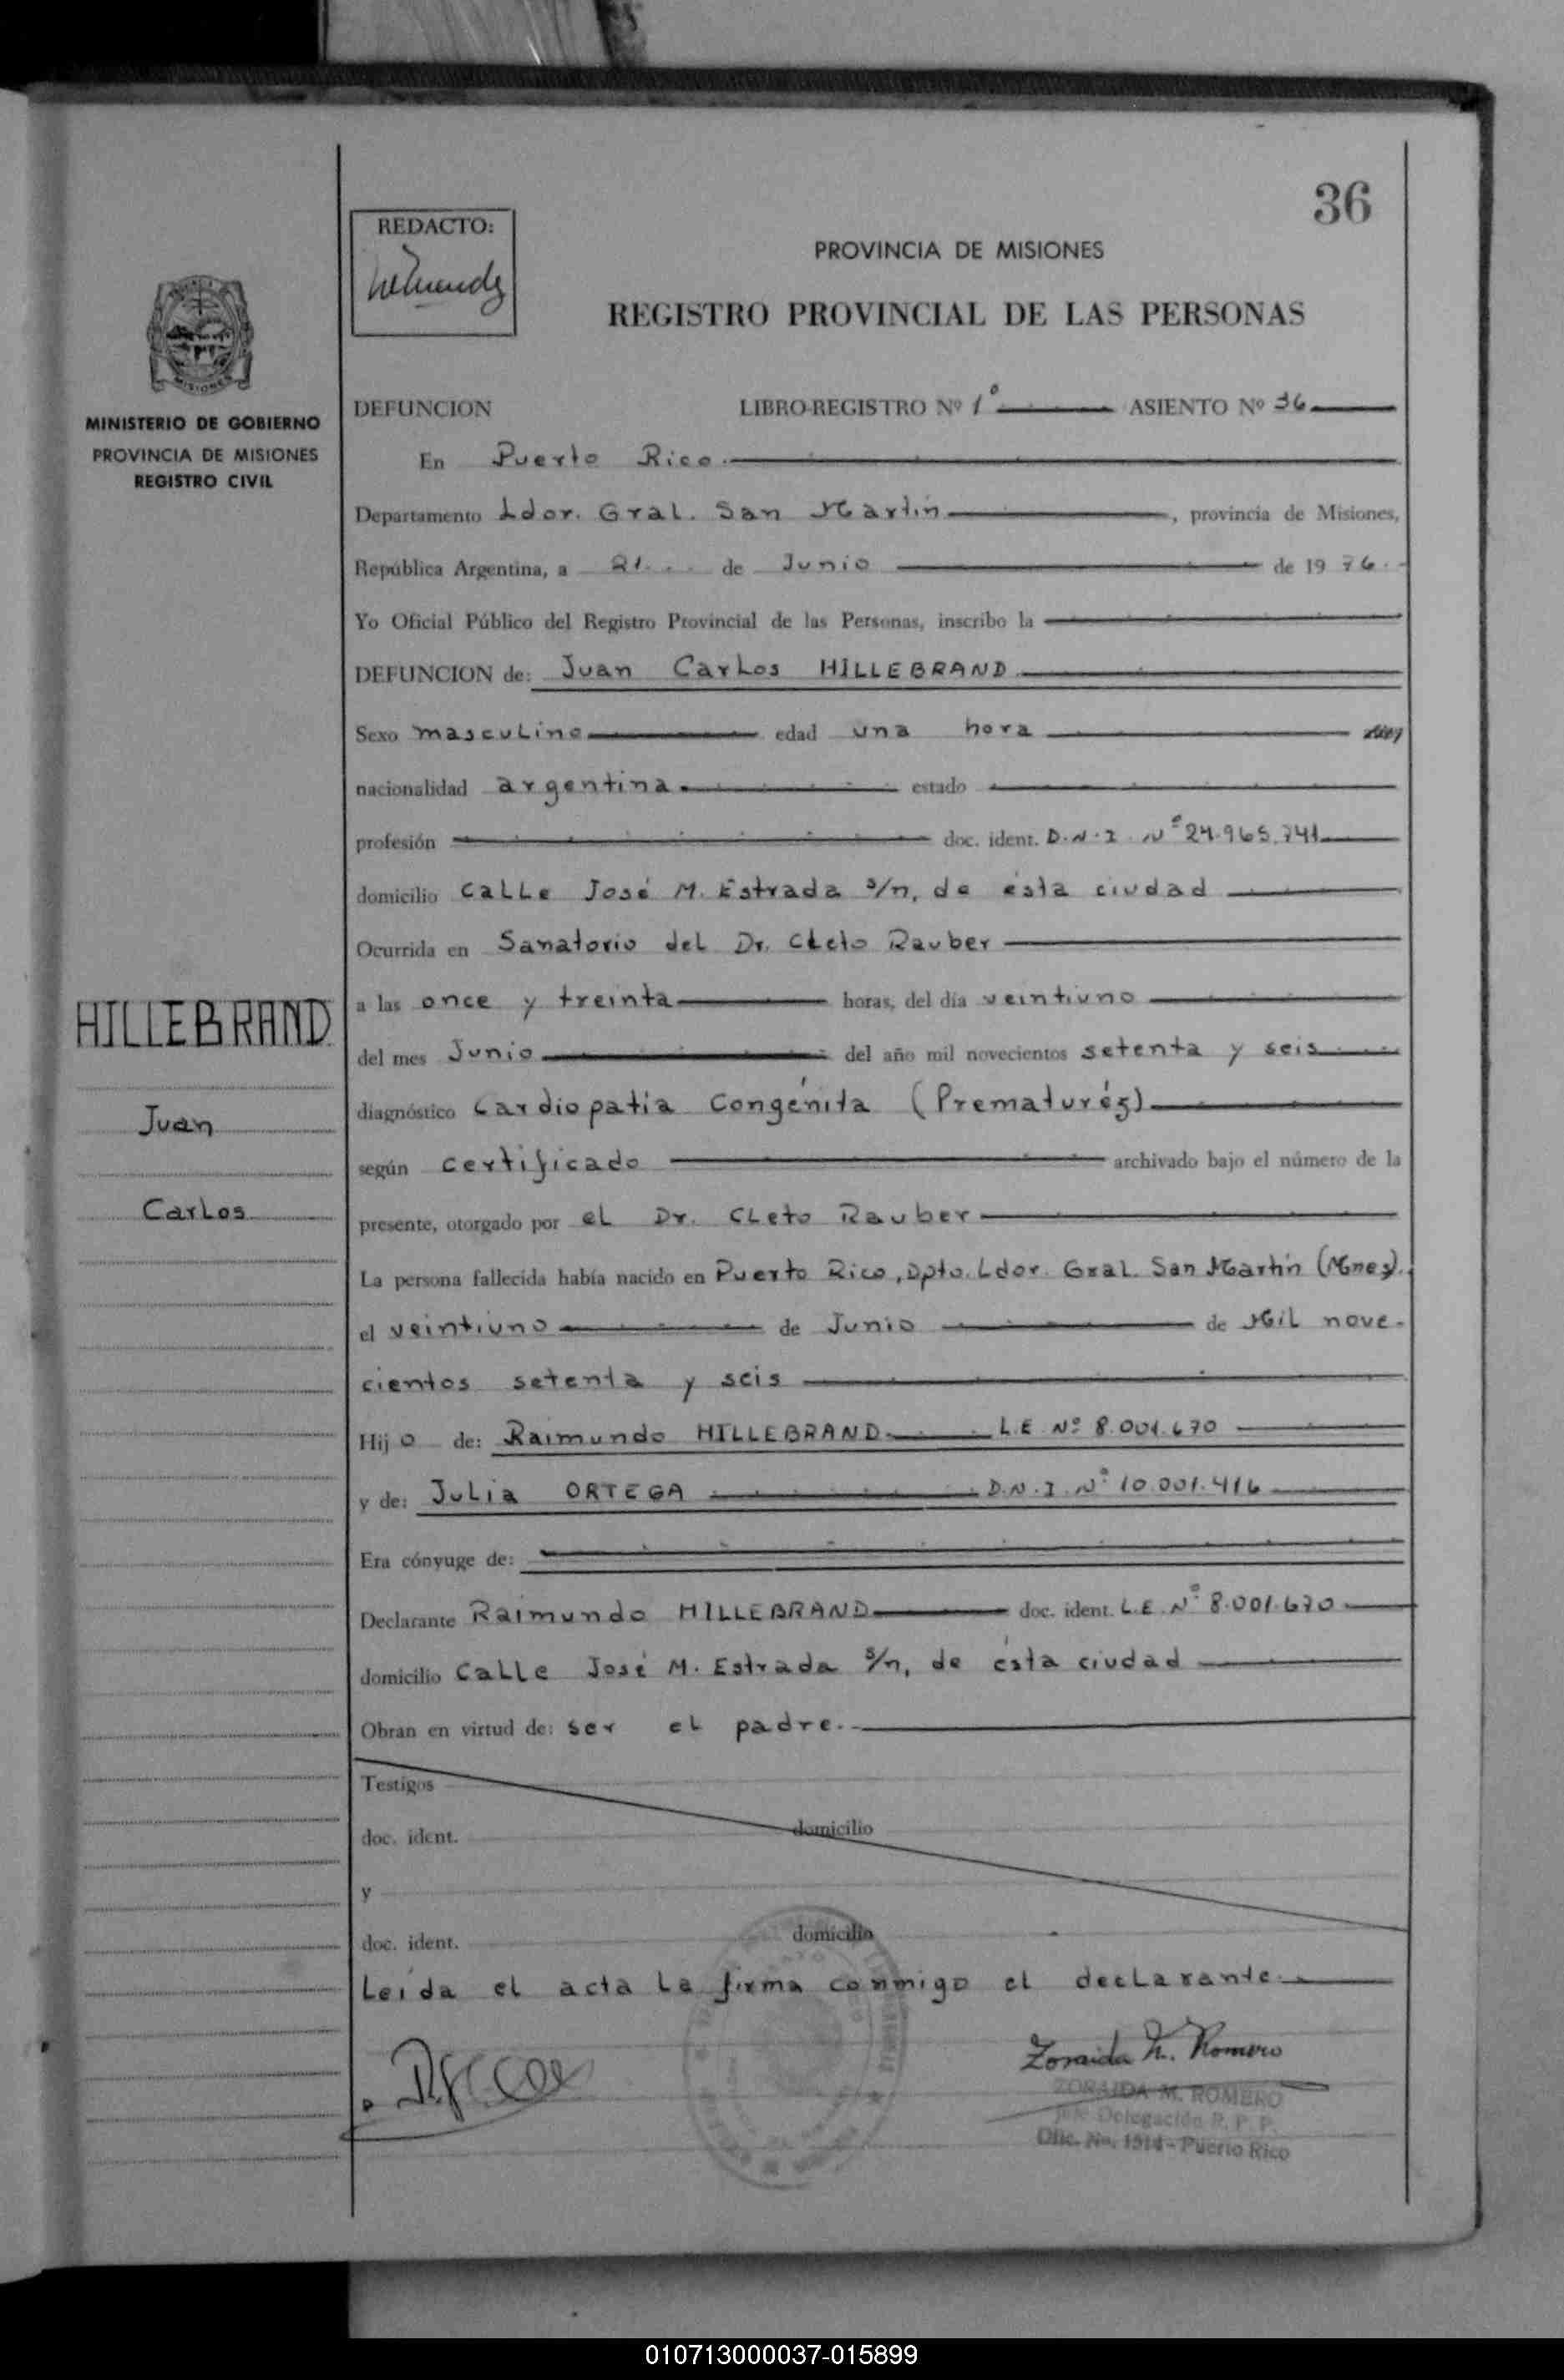 36
REDACTO:
PROVINCIA DE MISIONES
REGISTRO PROVINCIAL DE LAS PERSONAS
MISIONES
MINISTERIO DE GOBIERNO
PROVINCIA DE MISIONES
REGISTRO CIVIL
DEFUNCION LIBRO-REGISTRO Nº 1º ASIENTO Nº 36
En Puerto Rico.
Departamento Ldor. Gral. San Martín, provincia de Misiones,
República Argentina, a 21. de Junio de 1976.
Yo Oficial Público del Registro Provincial de las Personas, inscribo la
DEFUNCION de: Juan Carlos HILLEBRAND
Sexo masculino edad una hora
nacionalidad argentina. estado
profesión doc. ident. D.N.I. Nº 24.965.741
domicilio calle José M. Estrada s/n, de ésta ciudad
Ocurrida en Sanatorio del Dr. Cleto Rauber
HILLEBRAND
Juan
Carlos
a las once y treinta horas, del día veintiuno
del mes Junio del año mil novecientos setenta y seis
diagnóstico Cardiopatía Congénita (Prematuréz)
según certificado archivado bajo el número de la
presente, otorgado por el Dr. Cleto Rauber
La persona fallecida había nacido en Puerto Rico, Dpto. Ldor. Gral. San Martín (Mnes).
el veintiuno de Junio de Mil nove-
cientos setenta y seis
Hijo de: Raimundo HILLEBRAND L.E. Nº 8.001.670
y de: Julia ORTEGA D.N.I. Nº 10.001.416
Era cónyuge de:
Declarante Raimundo HILLEBRAND doc. ident. L.E. Nº 8.001.670
domicilio Calle José M. Estrada s/n, de ésta ciudad
Obran en virtud de: ser el padre.
Testigos
doc. ident. domicilio
y
doc. ident. domicilio
Leída el acta la firma conmigo el declarante.
Zoraida M. Romero
ZORAIDA M. ROMERO
Jefe Delegación R. P. P.
Ofic. No. 1514 - Puerto Rico
010713000037-015899